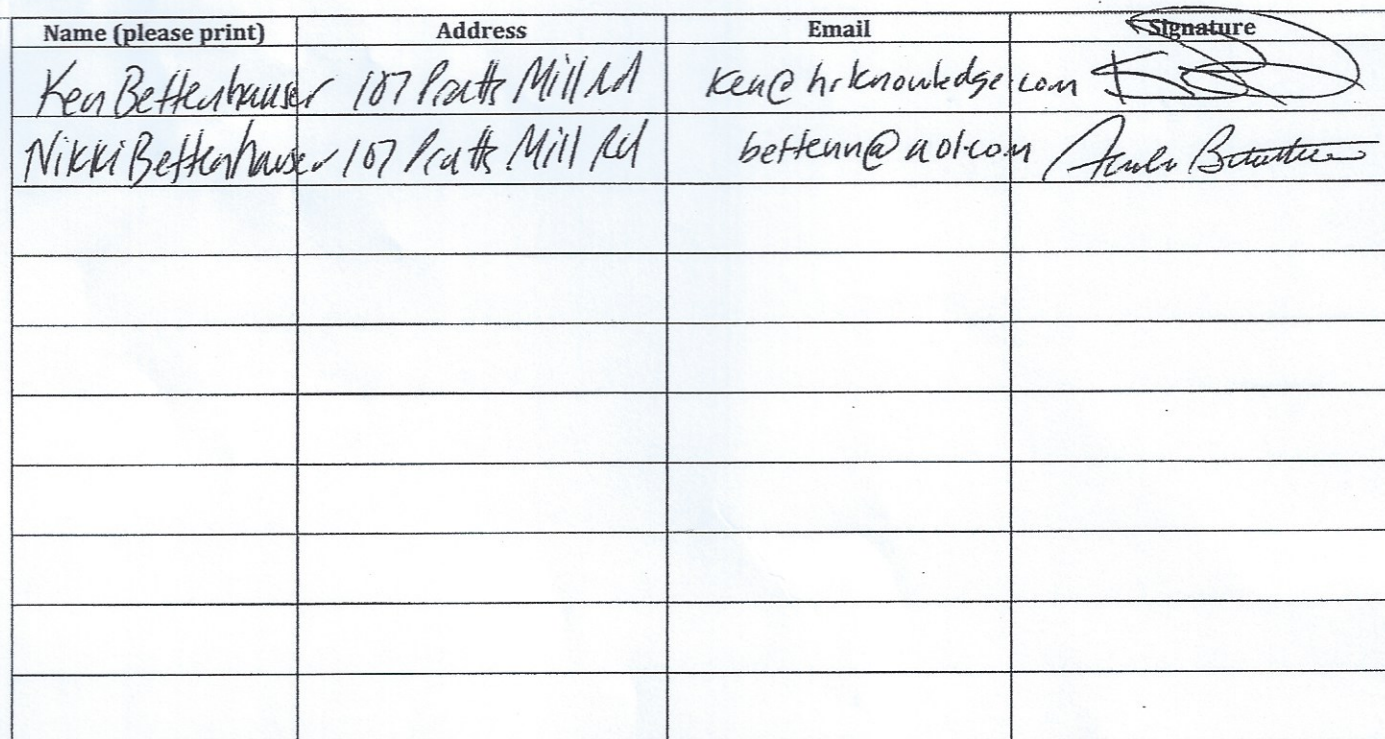 Name (please print) Address Email Signature
Ken Bettenhauser 107 Pratts Mill Rd Ken@hrknowledge.com
Nikki Bettenhauser 107 Pratts Mill Rd bettenn@aol.com